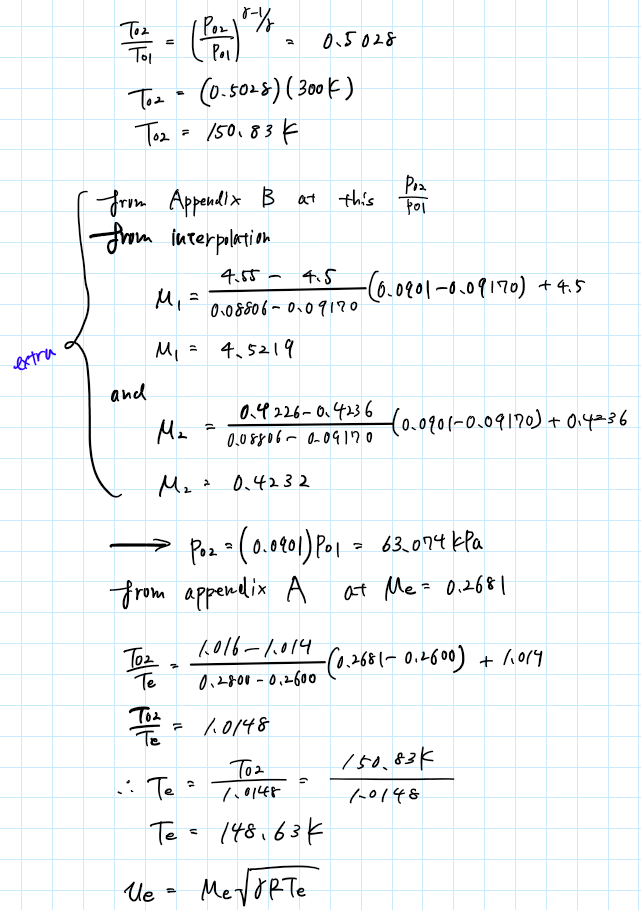 T02/T01 = (P02/P01)^γ-1/γ = 0.5028
T02 = (0.5028)(300K)
T02 = 150.83K
from Appendix B at this P02/P01
from interpolation
M1 = (4.55 - 4.5)/(0.08806-0.09170) (0.0901-0.09170) + 4.5
M1 = 4.5219
extra
and
M2 = (0.4226-0.4236)/(0.08806-0.09170) (0.0901-0.09170) + 0.4236
M2 = 0.4232
→ P02 = (0.0901)P01 = 63.074 kPa
from appendix A at Me = 0.2681
T02/Te = (1.016-1.014)/(0.2800-0.2600) (0.2681-0.2600) + 1.014
T02/Te = 1.0148
∴ Te = T02/1.0148 = 150.83K/1.0148
Te = 148.63K
Ue = Me√γRTe